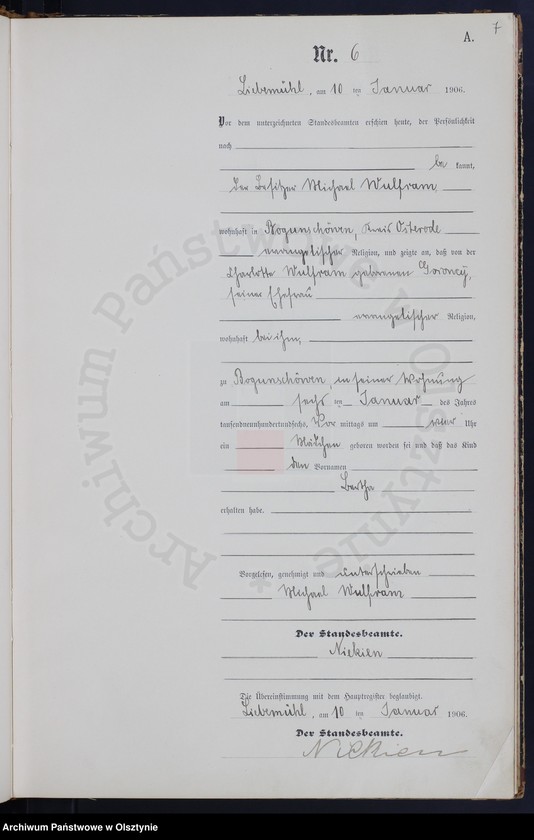 7
A.
Nr. 6
Liebemühl, am 10 ten Januar 1906.
Vor dem unterzeichneten Standesbeamten erschien heute, der Persönlichkeit
nach
be kannt,
der Besitzer Michael Wulfram
wohnhaft in Bogunschöwen, Kreis Osterode
evangelischer Religion, und zeigte an, daß von der
Charlotte Wulfram geborenen Goroncy,
seiner Ehefrau
evangelischer Religion,
wohnhaft bei ihm,
zu Bogunschöwen, in seiner Wohnung
am sechs ten Januar des Jahres
tausendneunhundertundsechs, Vor mittags um vier Uhr
ein Mädchen geboren worden sei und daß das Kind
den Vornamen
Bertha
erhalten habe.
Vorgelesen, genehmigt und unterschrieben
Michael Wulfram
Der Standesbeamte.
Niekien
Die Übereinstimmung mit dem Hauptregister beglaubigt.
Liebemühl, am 10 ten Januar 1906.
Der Standesbeamte.
Niekien
Archiwum Państwowe w Olsztynie
Archiwum Państwowe w Olsztynie *